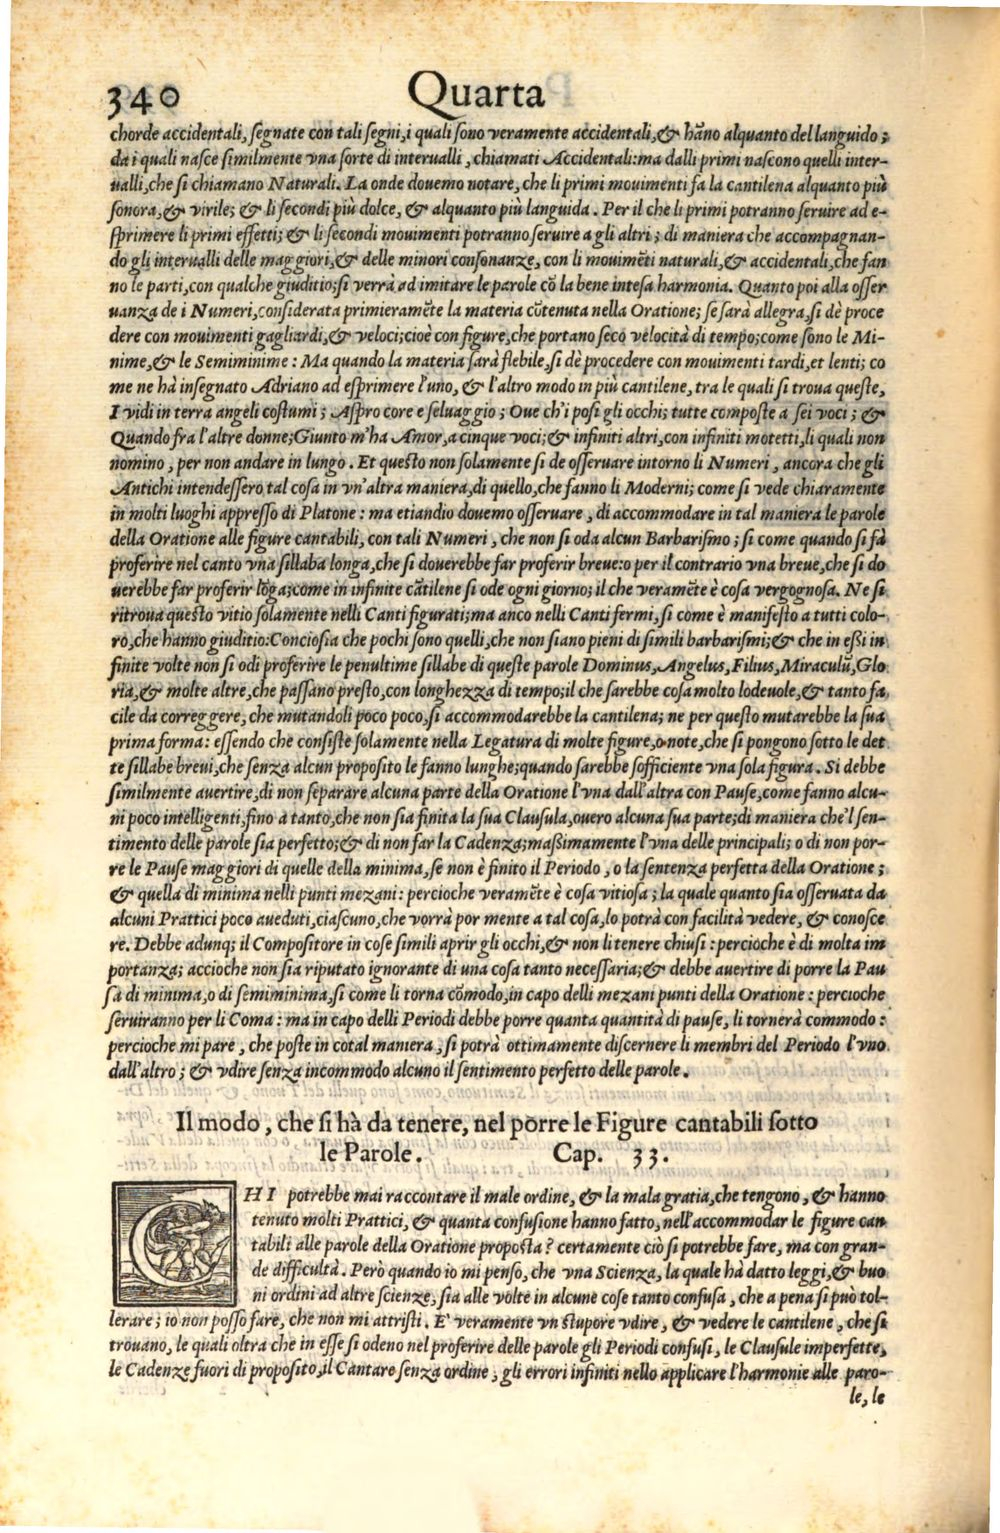 340 Quarta
chorde accidentali, ſegnate con tali ſegni, i quali ſono veramente accidentali, & hãno alquanto del languido ;
da i quali naſce ſimilmente vna ſorte di interualli, chiamati Accidentali: ma dalli primi naſcono quelli inter-
ualli, che ſi chiamano Naturali. La onde douemo notare, che li primi mouimenti fa la cantilena alquanto più
ſonora, & virile; & li ſecondi più dolce, & alquanto più languida. Per il che li primi potranno ſeruire ad e-
ſprimere li primi effetti; & li ſecondi mouimenti potranno ſeruire a gli altri; di maniera che accompagnan-
do gli interualli delle maggiori, & delle minori conſonanze, con li mouimẽti naturali, & accidentali, che fan
no le parti, con qualche giuditio; ſi verrà ad imitare le parole cõ la bene inteſa harmonia. Quanto poi alla oſſer
uanza de i Numeri, conſiderata primieramẽte la materia cõtenuta nella Oratione; ſe ſarà allegra, ſi dè proce
dere con mouimenti gagliardi, & veloci; cioè con figure, che portano ſeco velocità di tempo; come ſono le Mi-
nime, & le Semiminime : Ma quando la materia ſarà flebile, ſi dè procedere con mouimenti tardi, et lenti; co
me ne hà inſegnato Adriano ad eſprimere l'uno, & l'altro modo in più cantilene, tra le quali ſi troua queſte,
I vidi in terra angeli coſtumi ; Aſpro core e ſeluaggio ; Oue ch'i poſi gli occhi; tutte compoſte a ſei voci ; &
Quando fra l'altre donne; Giunto m'ha Amor, a cinque voci; & infiniti altri, con infiniti motetti, li quali non
nomino, per non andare in lungo. Et queſto non ſolamente ſi de oſſeruare intorno li Numeri, ancora che gli
Antichi intendeſſero tal coſa in vn'altra maniera, di quello, che fanno li Moderni; come ſi vede chiaramente
in molti luoghi appreſſo di Platone : ma etiandio douemo oſſeruare, di accommodare in tal maniera le parole
della Oratione alle figure cantabili, con tali Numeri, che non ſi oda alcun Barbariſmo ; ſi come quando ſi fà
proferire nel canto vna ſillaba longa, che ſi douerebbe far proferir breue: o per il contrario vna breue, che ſi do
uerebbe far proferir lõga; come in infinite cãtilene ſi ode ogni giorno; il che veramẽte è coſa vergognoſa. Ne ſi
ritroua queſto vitio ſolamente nelli Canti figurati; ma anco nelli Canti fermi, ſi come è manifeſto a tutti colo-
ro, che hanno giuditio: Concioſia che pochi ſono quelli, che non ſiano pieni di ſimili barbariſmi; & che in eßi in
finite volte non ſi odi proferire le penultime ſillabe di queſte parole Dominus, Angelus, Filius, Miraculũ, Glo
ria, & molte altre, che paſſano preſto, con longhezza di tempo; il che ſarebbe coſa molto lodeuole, & tanto fa
cile da correggere, che mutandoli poco poco, ſi accommodarebbe la cantilena; ne per queſto mutarebbe la ſua
prima forma: eſſendo che conſiſte ſolamente nella Legatura di molte figure, o note, che ſi pongono ſotto le det
te ſillabe breui, che ſenza alcun propoſito le fanno lunghe; quando ſarebbe ſofficiente vna ſola figura. Si debbe
ſimilmente auertire, di non ſeparare alcuna parte della Oratione l'vna dall'altra con Pauſe, come fanno alcu-
ni poco intelligenti, fino a tanto, che non ſia finita la ſua Clauſula, ouero alcuna ſua parte; di maniera che'l ſen-
timento delle parole ſia perfetto; & di non far la Cadenza; maßimamente l'vna delle principali; o di non por-
re le Pauſe maggiori di quelle della minima, ſe non è finito il Periodo, o la ſentenza perfetta della Oratione ;
& quella di minima nelli punti mezani : percioche veramẽte è coſa vitioſa ; la quale quanto ſia oſſeruata da
alcuni Prattici poco aueduti, ciaſcuno, che vorrà por mente a tal coſa, lo potrà con facilità vedere, & conoſce
re. Debbe adunq; il Compoſitore in coſe ſimili aprir gli occhi, & non li tenere chiuſi : percioche è di molta im
portanza; accioche non ſia riputato ignorante di una coſa tanto neceſſaria; & debbe auertire di porre la Pau
ſa di minima, o di ſemiminima, ſi come li torna cõmodo, in capo delli mezani punti della Oratione : percioche
ſeruiranno per li Coma : ma in capo delli Periodi debbe porre quanta quantità di pauſe, li tornerà commodo :
percioche mi pare, che poſte in cotal maniera, ſi potrà ottimamente diſcernere li membri del Periodo l'vno
dall'altro ; & vdire ſenza incommodo alcuno il ſentimento perfetto delle parole.
Il modo, che ſi hà da tenere, nel porre le Figure cantabili ſotto
le Parole. Cap. 33.
CHI potrebbe mai raccontare il male ordine, & la mala gratia, che tengono, & hanno
tenuto molti Prattici, & quanta confuſione hanno fatto, nell'accommodar le figure can
tabili alle parole della Oratione propoſta? certamente ciò ſi potrebbe fare, ma con gran-
de difficultà. Però quando io mi penſo, che vna Scienza, la quale hà datto leggi, & buo
ni ordini ad altre ſcienze, ſia alle volte in alcune coſe tanto confuſa, che a pena ſi può tol-
lerare; io non poſſo fare, che non mi attriſti. E' veramente vn ſtupore vdire, & vedere le cantilene, che ſi
trouano, le quali oltra che in eſſe ſi odeno nel proferire delle parole gli Periodi confuſi, le Clauſule imperfette,
le Cadenze fuori di propoſito, il Cantare ſenza ordine, gli errori infiniti nello applicare l'harmonie alle paro-
le, le